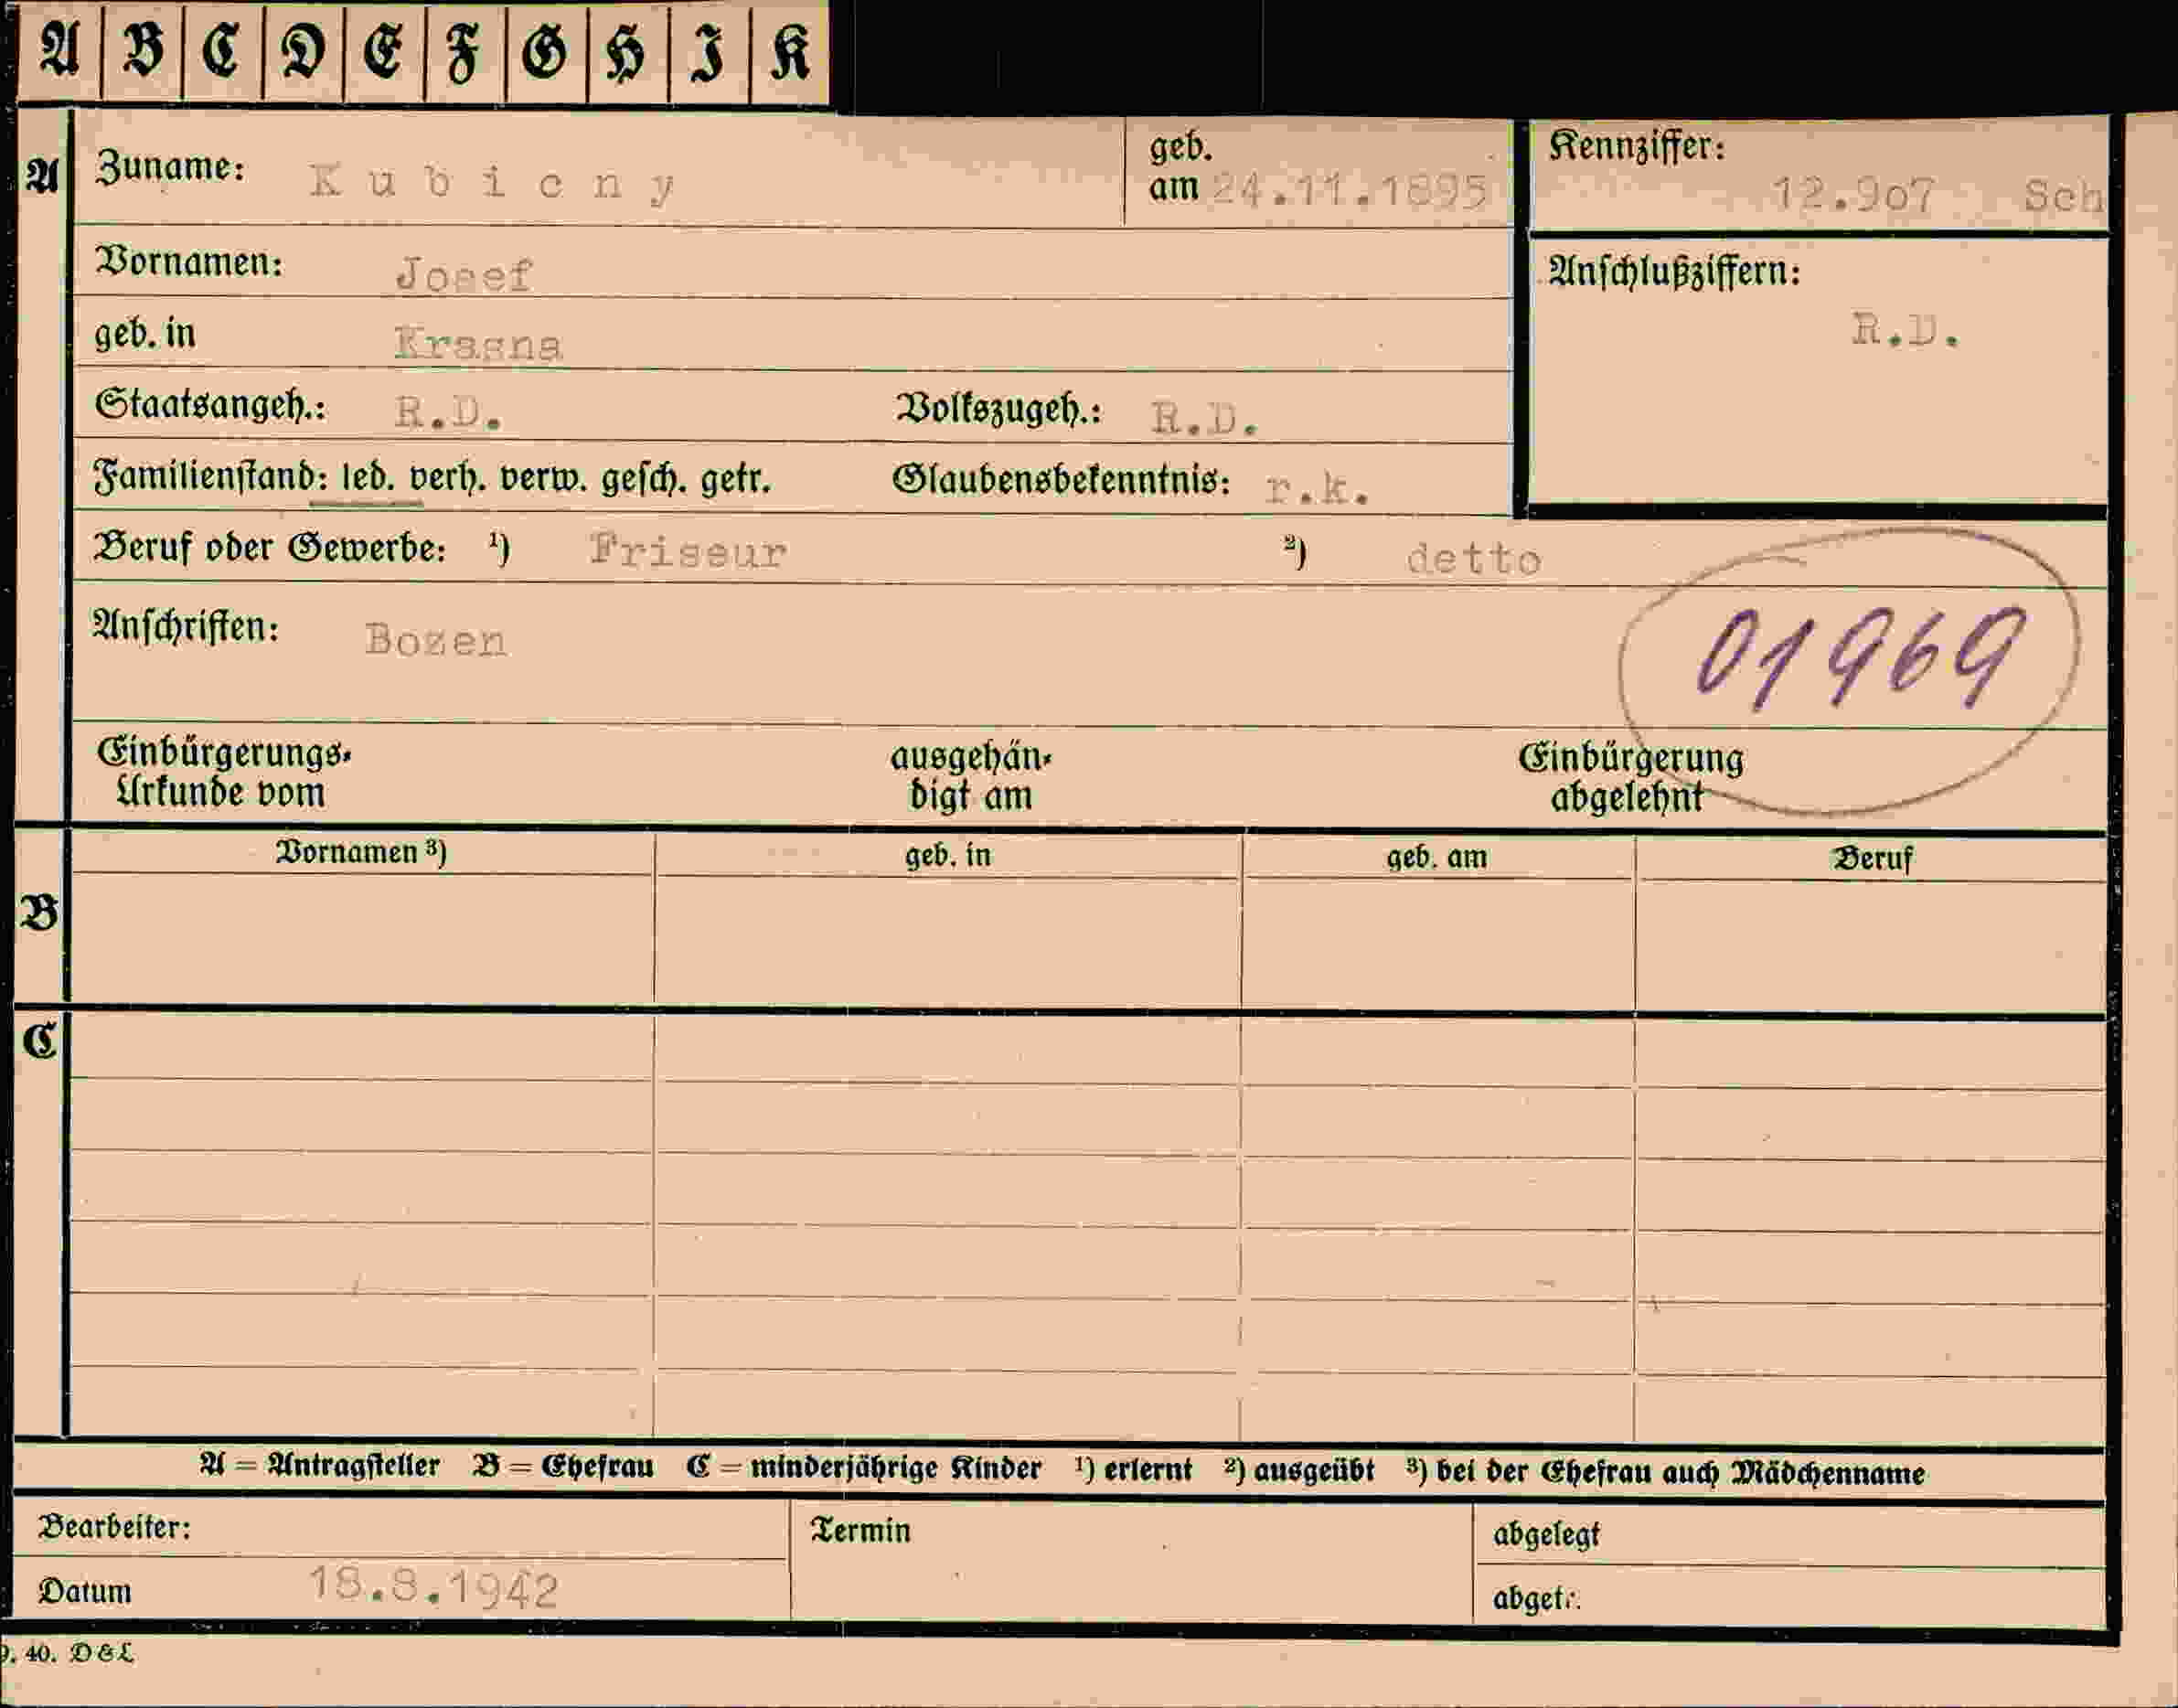 A B C D E F G H I K
A Zuname: Kubicny geb. am 24.11.1895 Kennziffer: 12.9o7 Sch
Vornamen: Josef Anschlußziffern: R.D.
geb. in Krasna
Staatsangeh.: R.D. Volkszugeh.: R.D.
Familienstand: led. verh. verw. gesch. getr. Glaubensbekenntnis: r.k.
Beruf oder Gewerbe: ¹) Friseur ²) detto
Anschriften: Bozen 01969
Einbürgerungs-Urkunde vom ausgehän-digt am Einbürgerung abgelehnt
Vornamen ³) geb. in geb. am Beruf
B
C
A = Antragsteller B = Ehefrau C = minderjährige Kinder ¹) erlernt ²) ausgeübt ³) bei der Ehefrau auch Mädchenname
Bearbeiter: Termin abgelegt
Datum 18.8.1942 abgetr.
9. 40. D&L